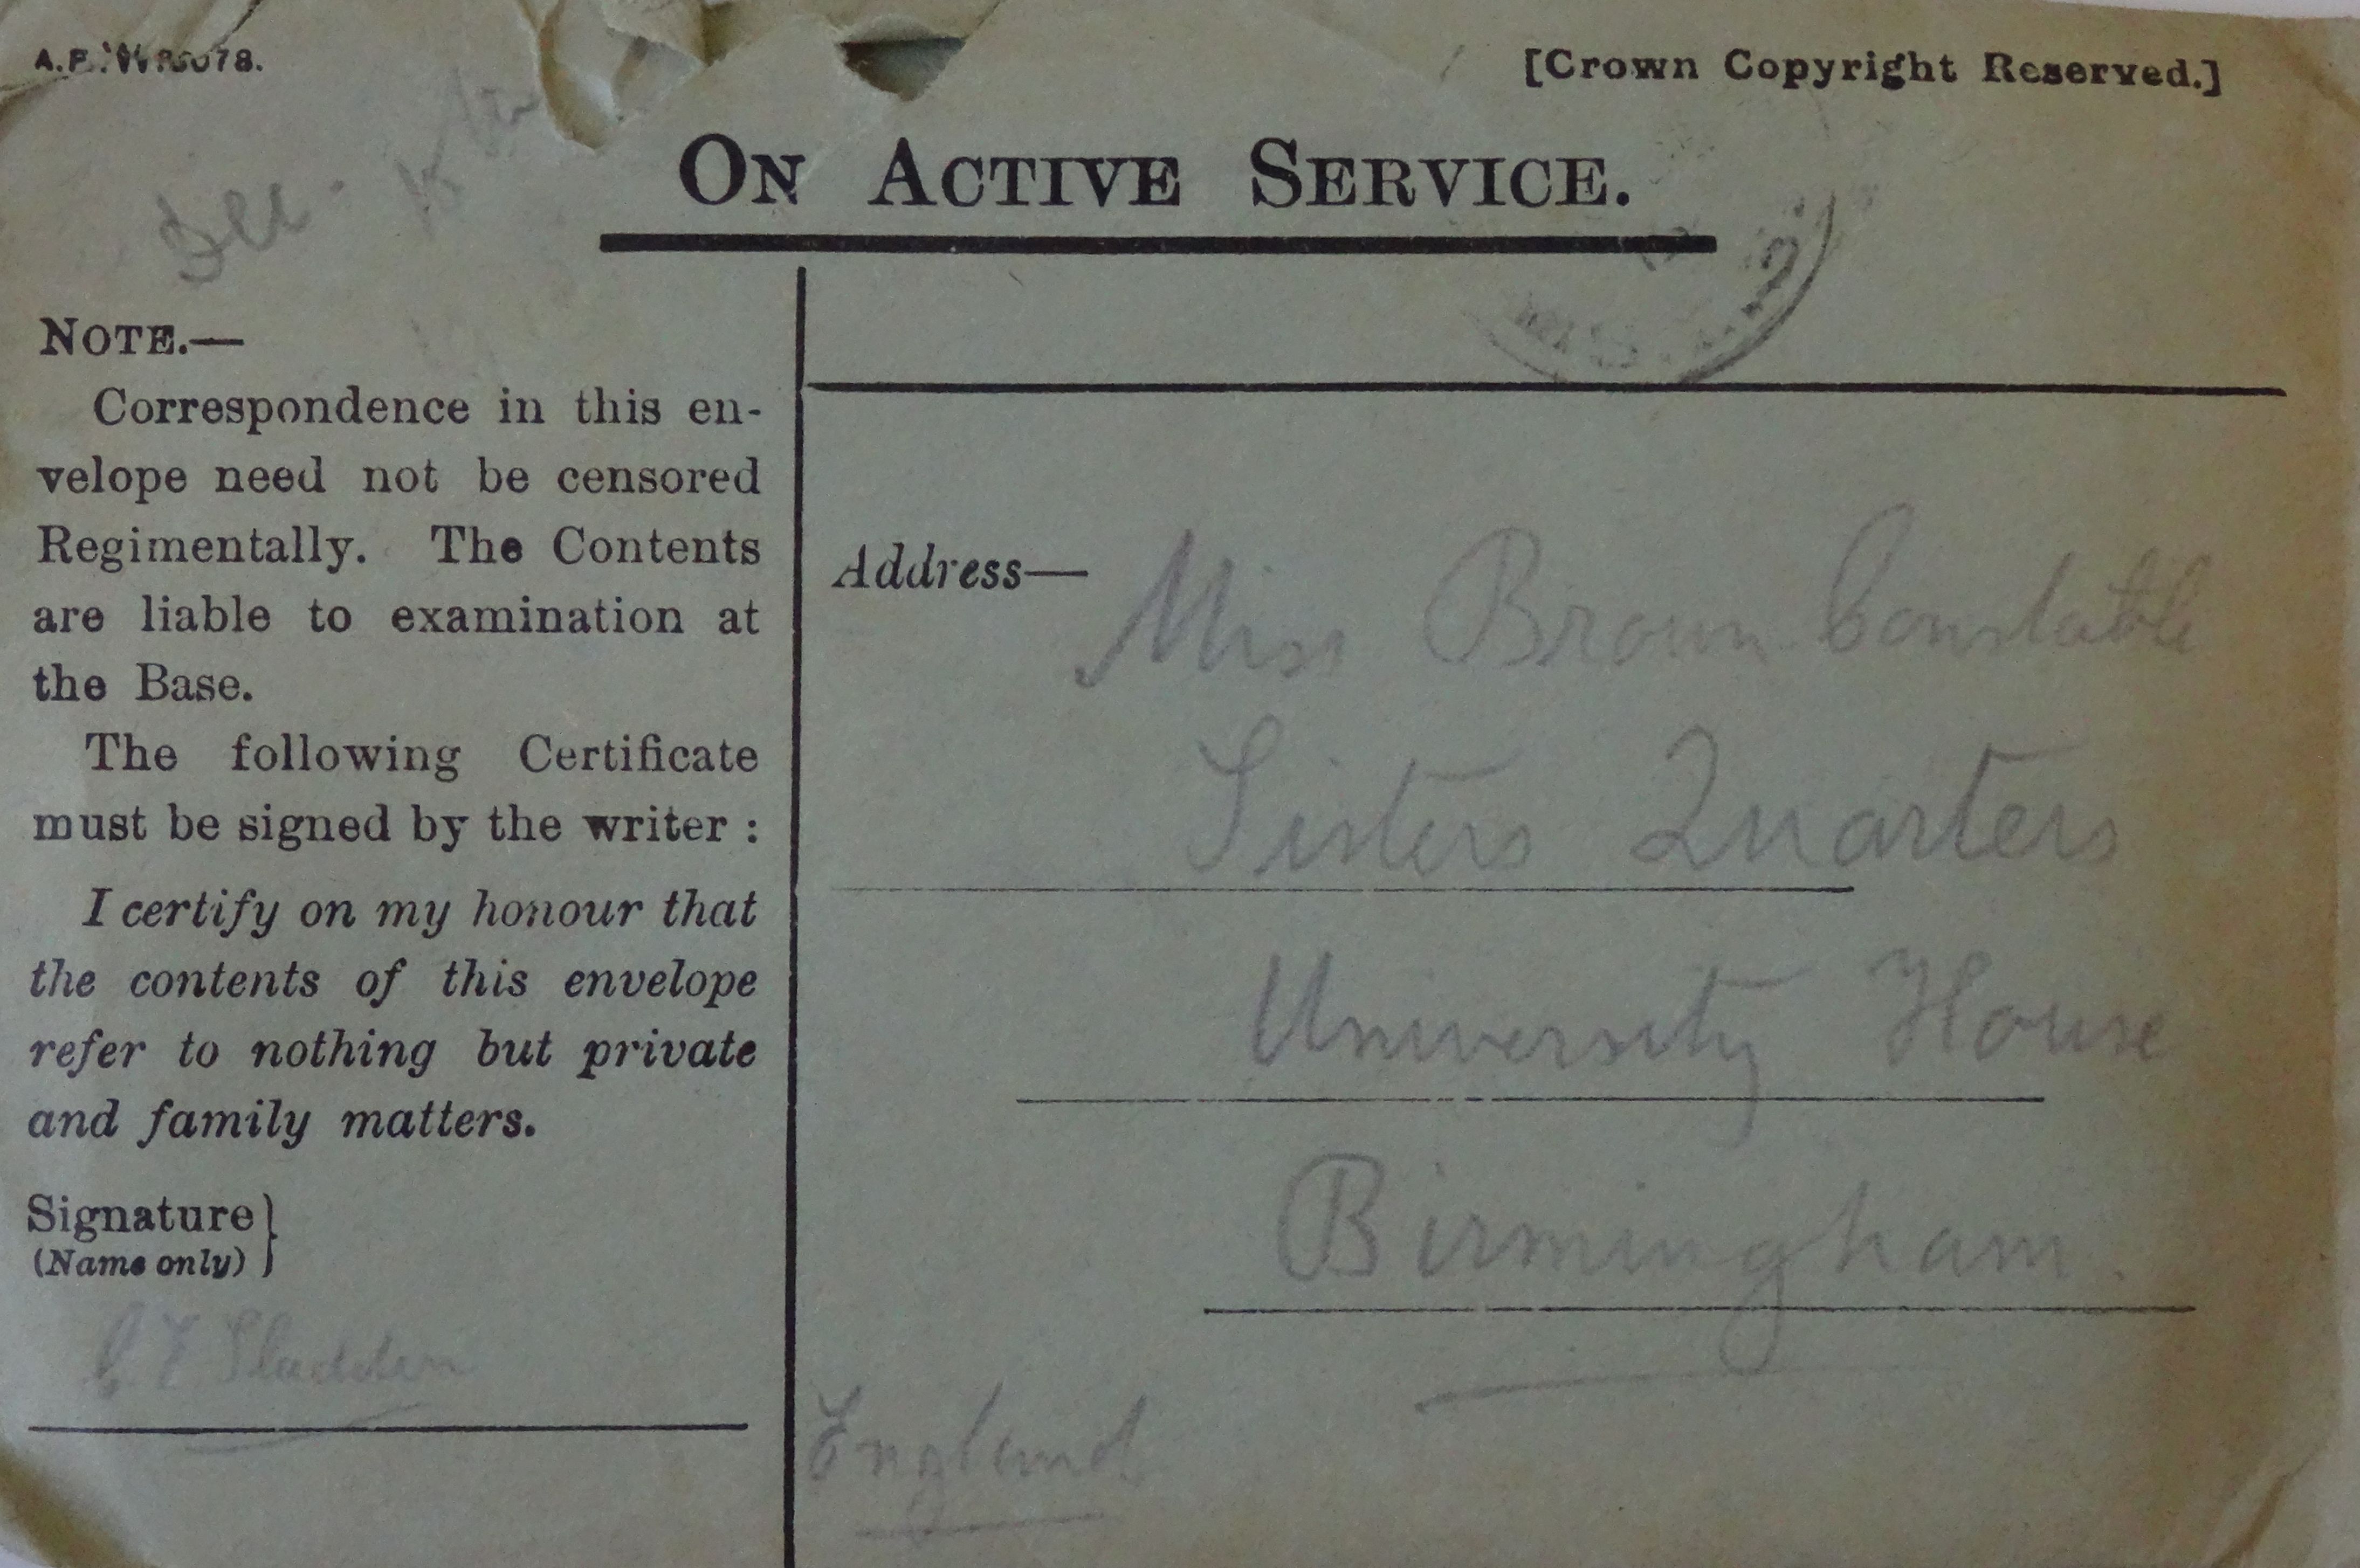 [Crown Copyright Reserved.]
ON ACTIVE SERVICE.
Dec. 15
NOTE.—
Correspondence in this en-
velope need not be censored
Regimentally. The Contents
are liable to examination at
the Base.
The following Certificate
must be signed by the writer :
I certify on my honour that
the contents of this envelope
refer to nothing but private
and family matters.
Signature}
(Name only)
C F Sladden
Address—
Miss Brown Constable
Sisters Quarters
University House
Birmingham.
England